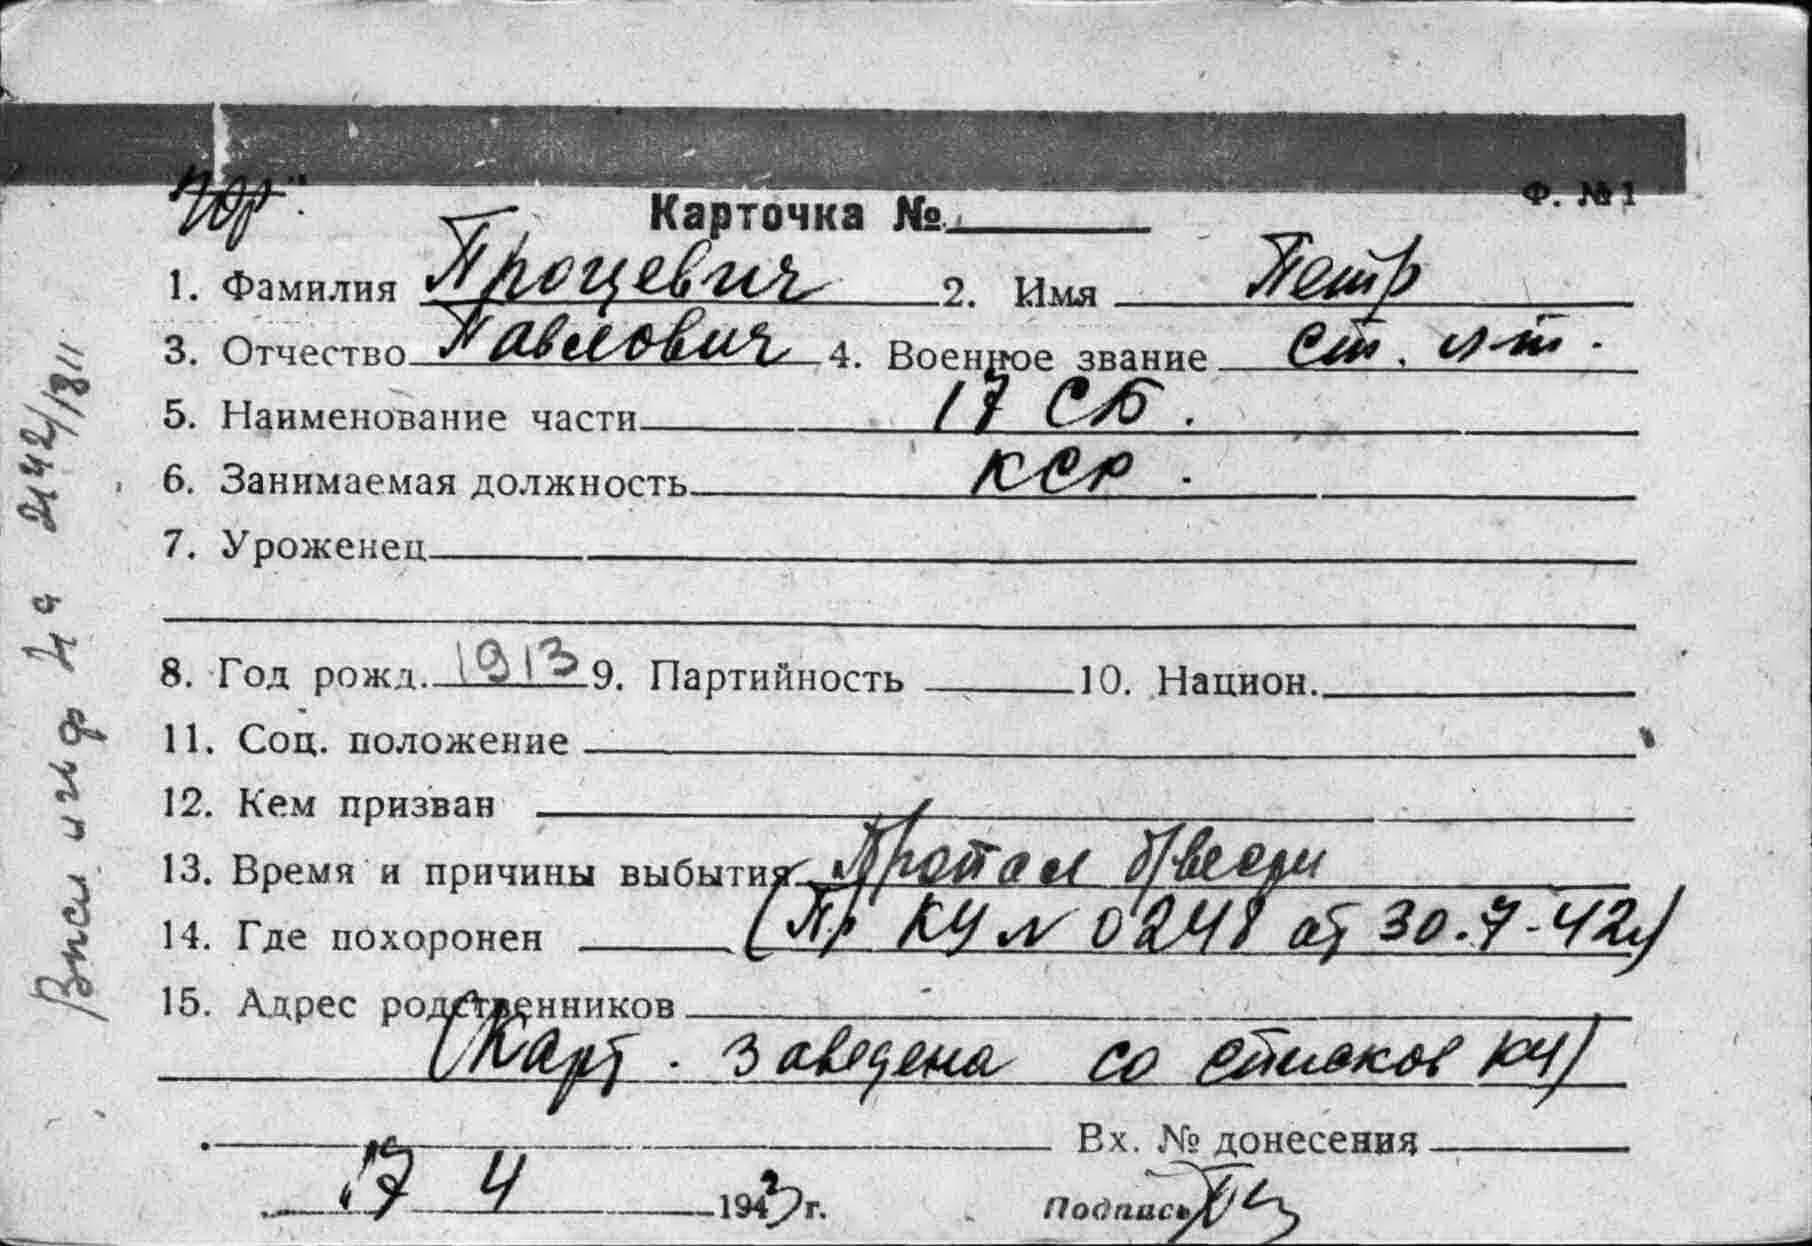 Ф. №1
Карточка №
1. Фамилия Процевич 2. Имя Петр
3. Отчество Павлович 4. Военное звание ст. л-т.
5. Наименование части 17 СБ.
6. Занимаемая должность КСР.
7. Уроженец
8. Год рожд. 1913 9. Партийность 10. Национ.
11. Соц. положение
12. Кем призван
13. Время и причины выбытия Пропал б/вести
14. Где похоронен (Пр КЧ № 0248 от 30.7-42г)
15. Адрес родственников
(Карт. заведена со списков КЧ)
Вх. № донесения
"17" 4 1943 г. Подпись